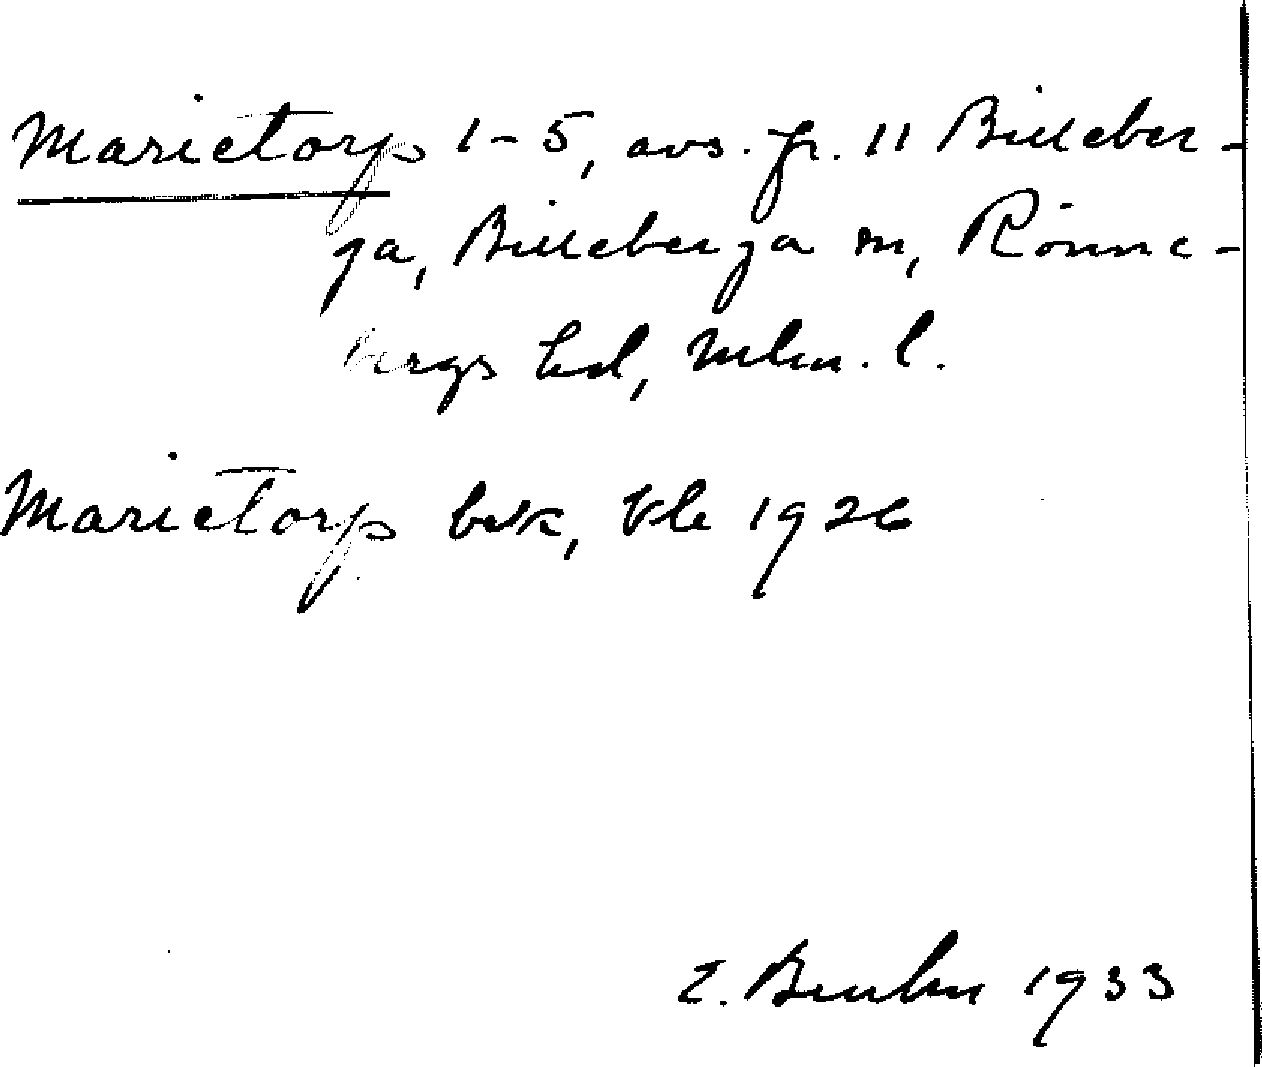 Marietorp 1-5, avs. fr. 11 Billeber-
ga, Billeberga sn, Rönne-
bergs hd, Mlm. l.
Marietorp bsk, Vb 1926
E. 1933